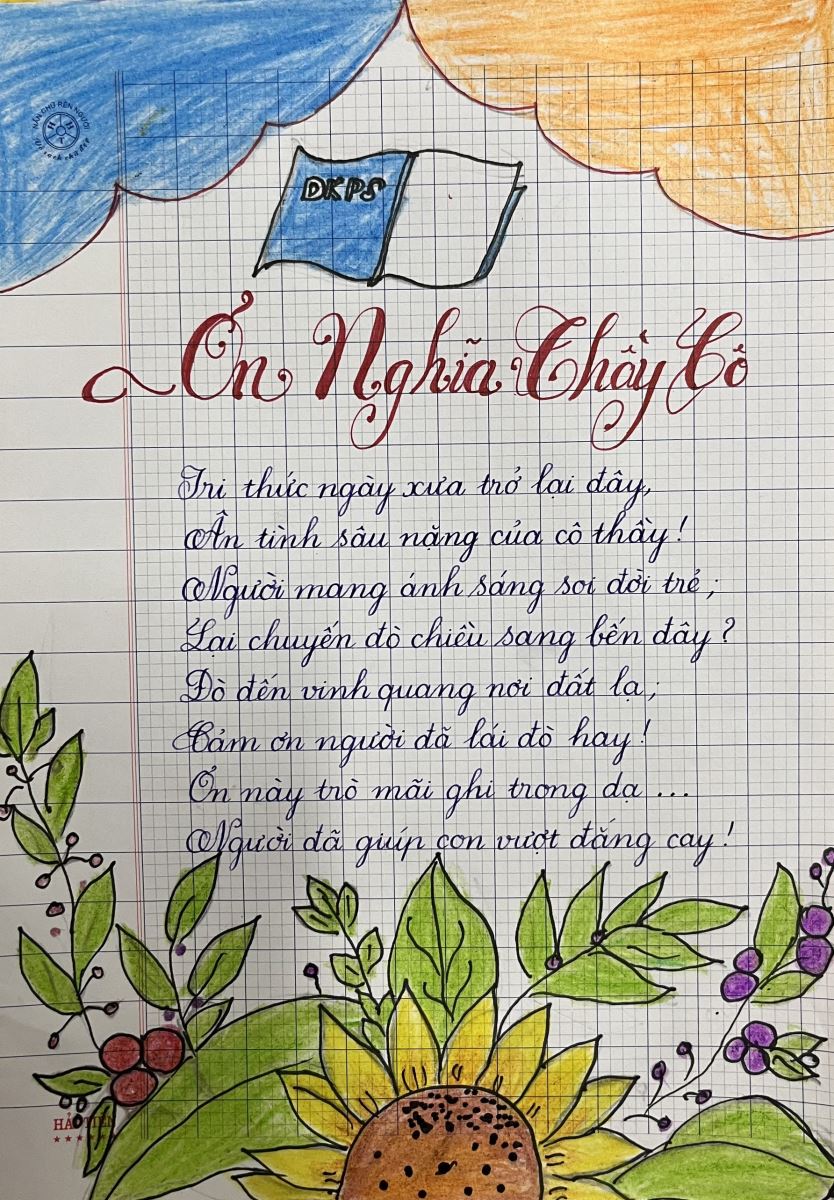 NẮN CHỮ RÈN NGƯỜI
DKPS
Ơn Nghĩa Thầy Cô
Tri thức ngày xưa trở lại đây,
Ân tình sâu nặng của cô thầy!
Người mang ánh sáng soi đời trẻ;
Lại chuyến đò chiều sang bến đây?
Đò đến vinh quang nơi đất lạ;
Cảm ơn người đã lái đò hay!
Ơn này trò mãi ghi trong dạ ...
Người đã giúp con vượt đắng cay!